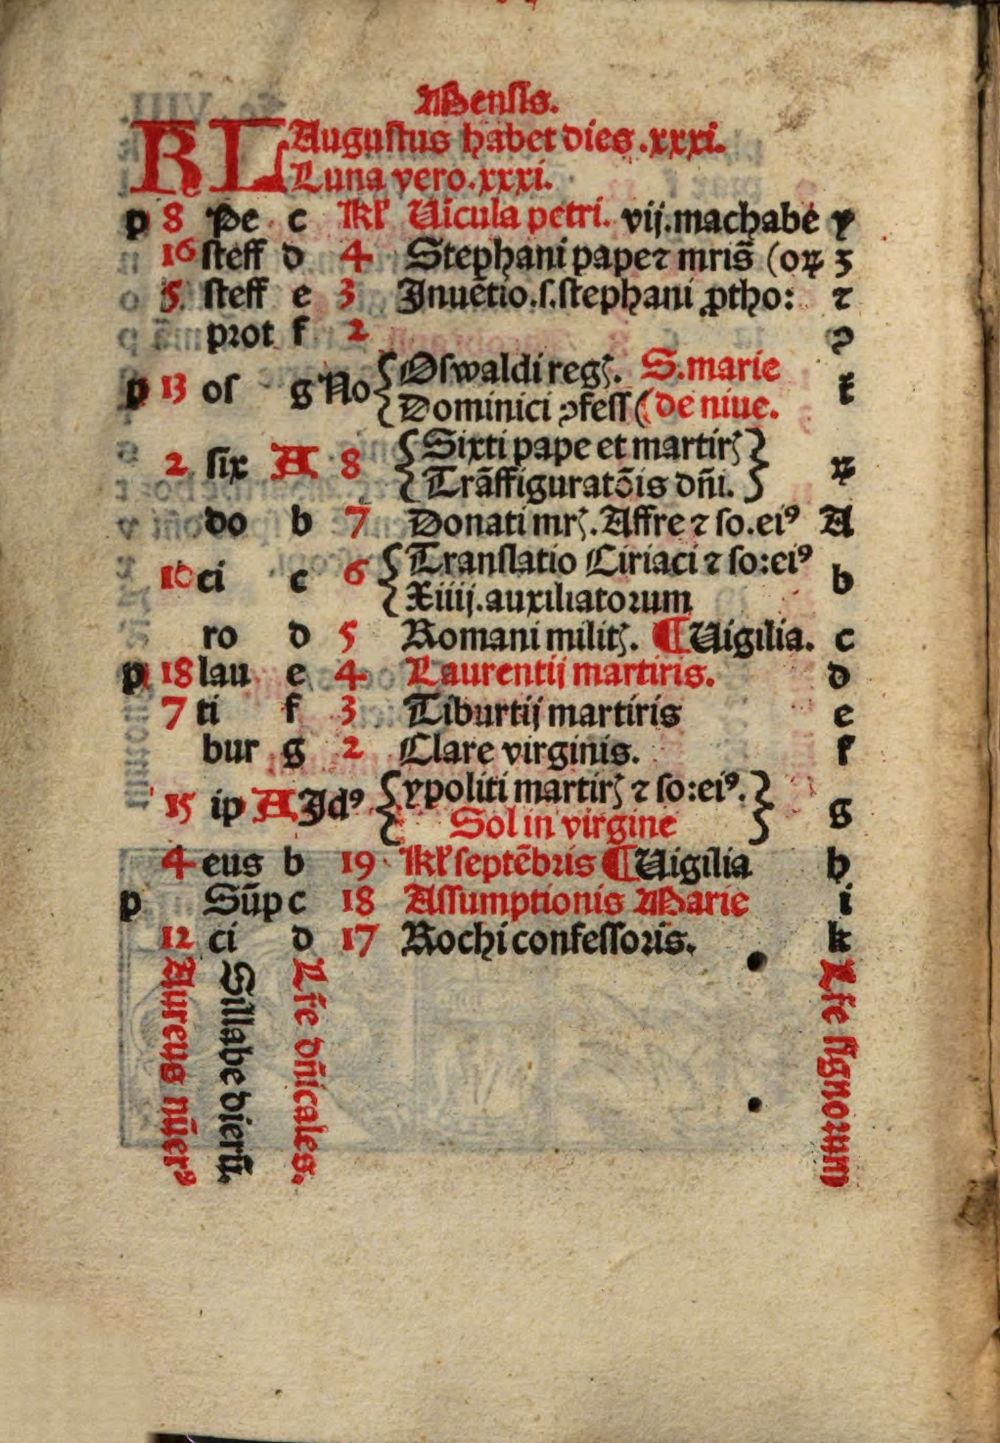 Mensis.
KL Augustus habet dies .xxxi.
Luna vero .xxxi.
p 8 Pe c Kl' Uicula petri. vij. machabe y
16 steff d 4 Stephani pape ⁊ mris̄ (oꝝ z
5 steff e 3 Inuētio .s. stephani ꝓtho: ⁊
prot f 2 ꝯ
p 13 os g No {Oswaldi reg. S. marie
{Dominici ꝯfess (de niue. t
2 six A 8 {Sixti pape et martir}
{Trāsfiguratōis dn̄i.} ꝝ
do b 7 Donati mr. Affre ⁊ so. eiꝰ A
ci c 6 {Translatio Ciriaci ⁊ so: eiꝰ
{Xiiij. auxiliatorum b
ro d 5 Romani milit. ¶ Uigilia. c
p 18 lau e 4 Laurentij martiris. d
7 ti f 3 Tiburtij martiris e
bur g 2 Clare virginis. f
15 ip A Idꝰ {ypoliti martir ⁊ so: eiꝰ.}
{Sol in virgine} g
4 eus b 19 Kl' septēbris ¶ Uigilia h
p Sūp c 18 Assumptionis Marie i
12 ci d 17 Rochi confessoris. k
Aureus nūerꝰ
Sillabe dierū.
Lr̄e dn̄icales.
Lr̄e signorum